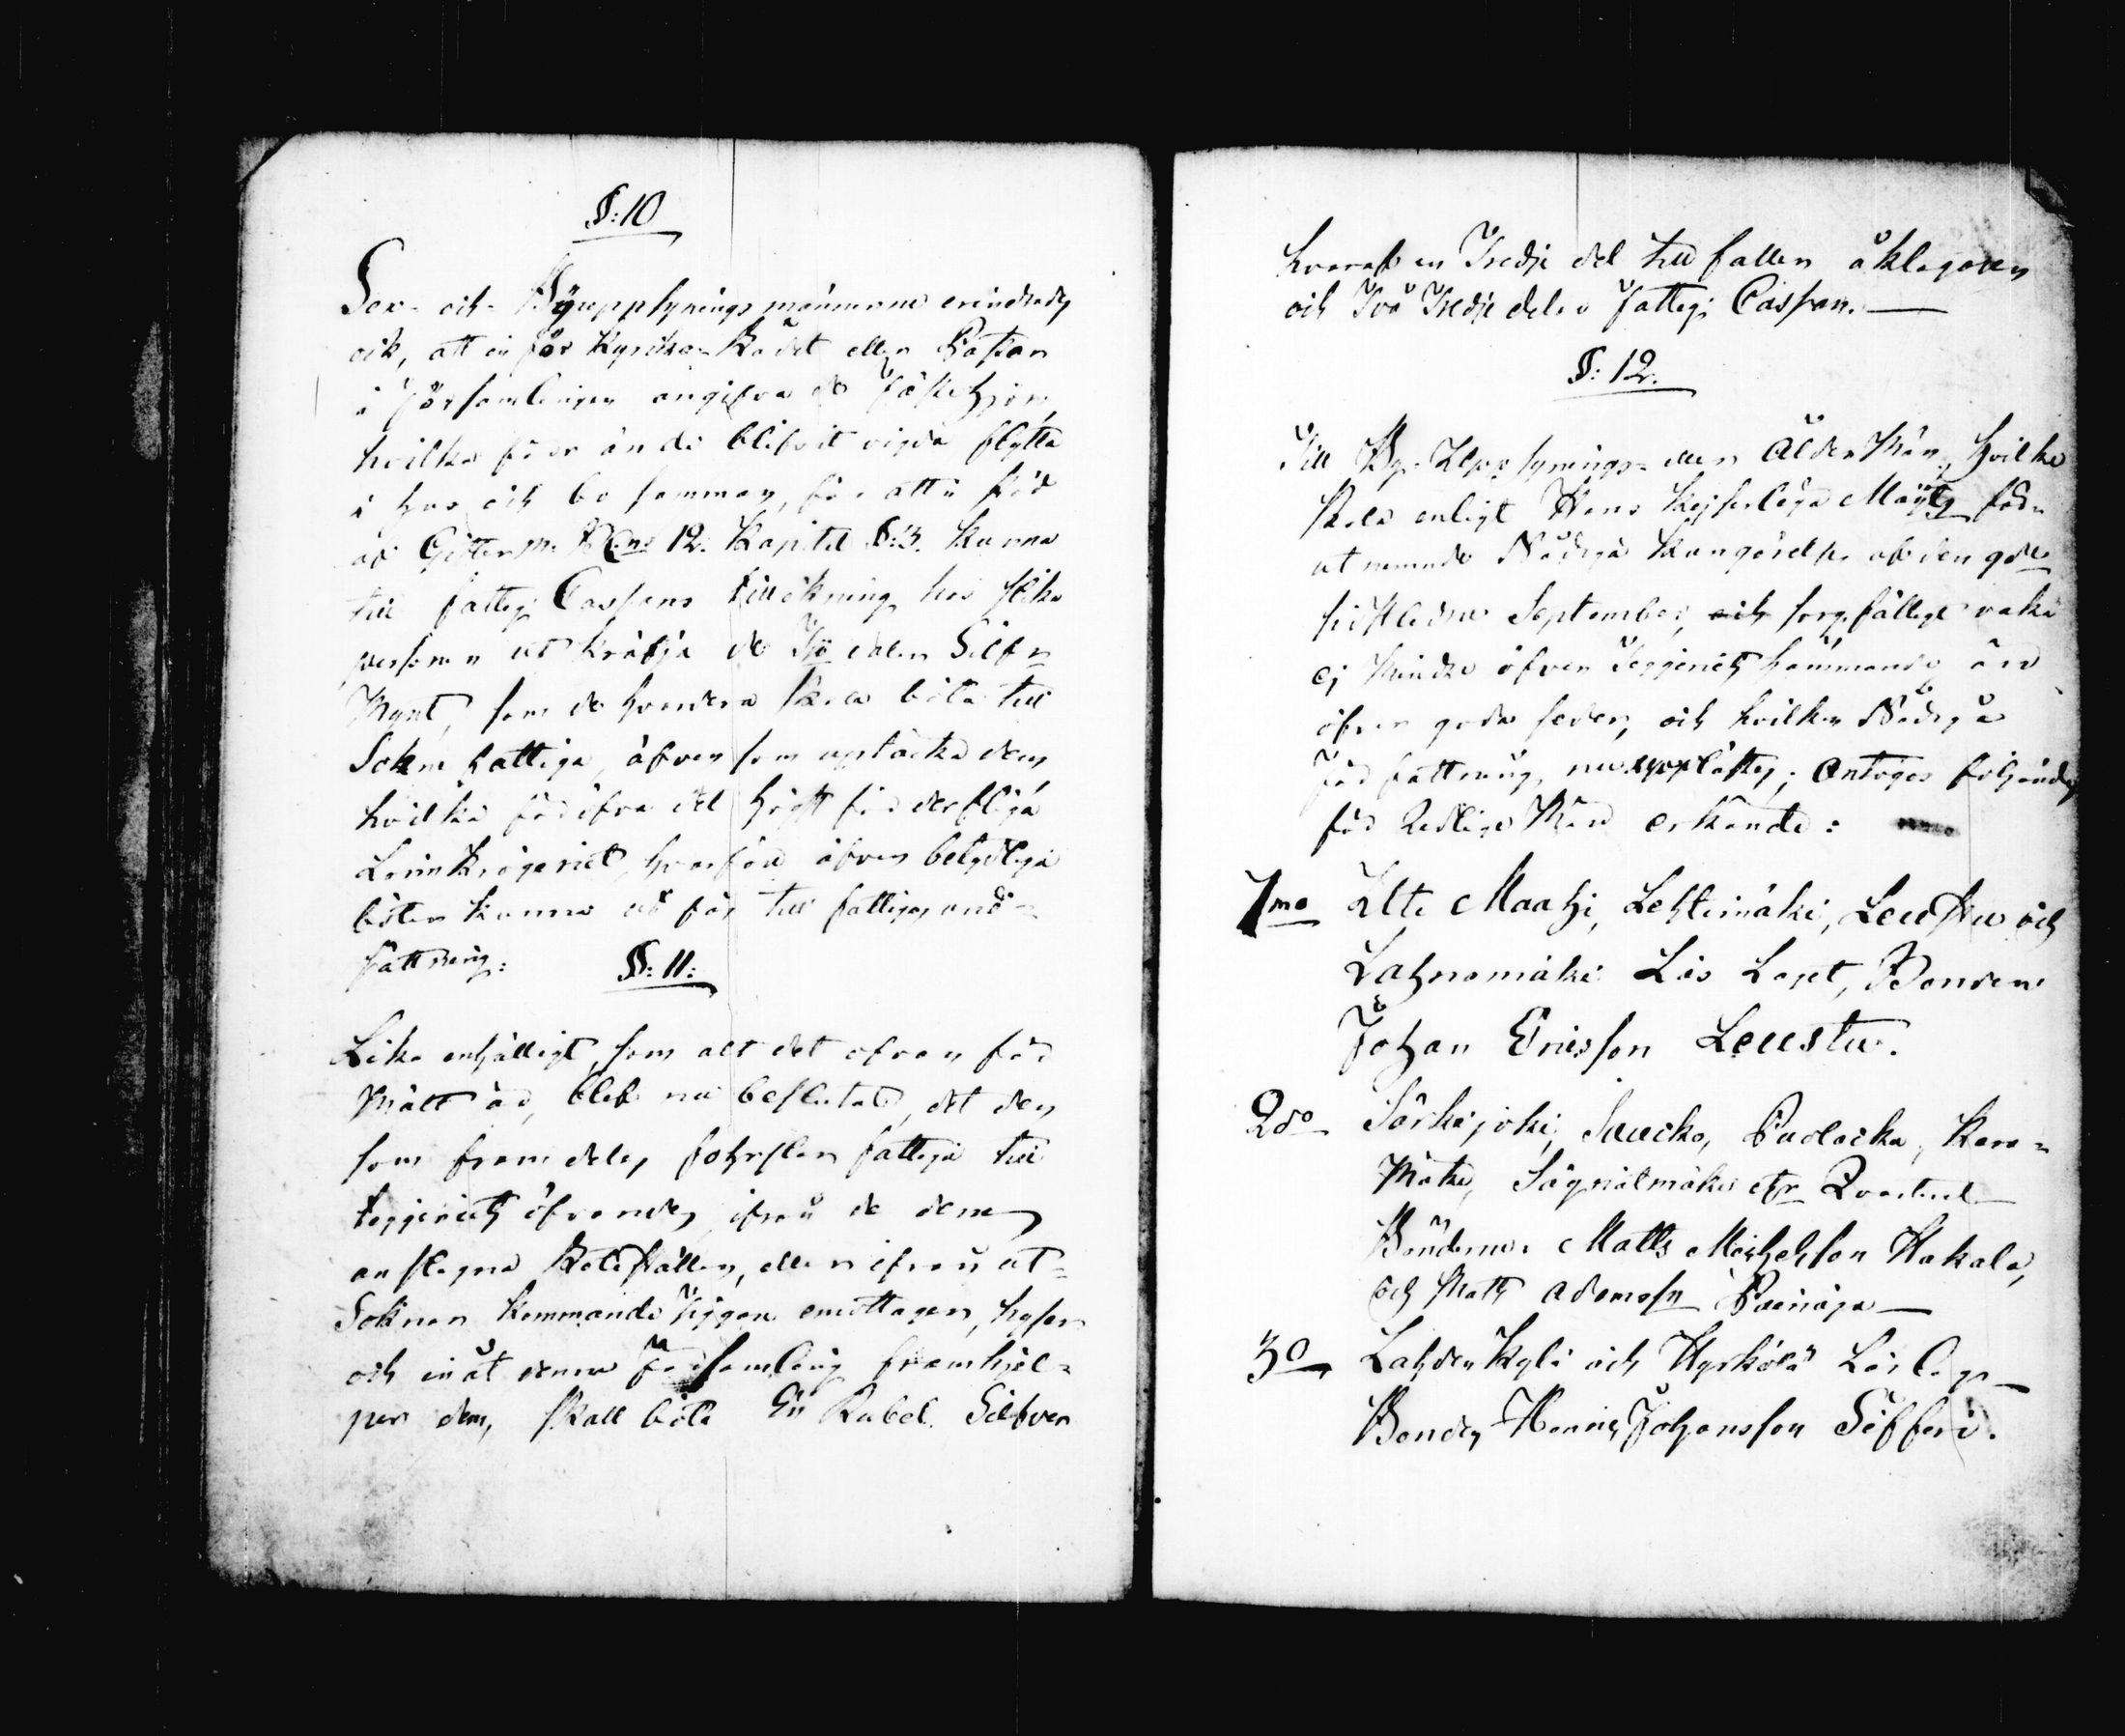 §: 10
Sex- och Byuppsynings männerne erindrades
ock, att inför Kyrko-Rådet eller Pastor
i Församlingen angifva de Fästehjon,
hvilka förr än de blifvit vigda flytta
i hus och bo samman, för att i stöd
af Gifterm: B:ns 12. Kapitel §:3. kunna
till fattig Cassans tillökning hos slika
personer utkräfja de Tjo daler Silfr
Mynt, som de hvardera skola böta till
Sokne fattiga, äfven som uptäcka dem,
hvilka föröfva det högst förderfliga
Lönnkrögeriet, hvarföre äfven betydliga
böter kunna utfås till fattiges und-
sättning:
§: 11:
Lika enhälligt, som alt det ofvan för
mält är, blef nu beslutad, det den
som fram deles fohrslar fattiga till
tiggeriets öfvande, ifrån de dem
anslagna Rotestället, eller ifrån ut-
Soknen kommande tiggare emottager, hyser
och inåt denna Församling framhjel-
per dem, skall böta En Rubel Silfver
hvaraf en Tredje del tillfaller åklagaren
och Två Tredje delar Fattig Cassan.
§: 12.
Till By-Uppsynings- eller Ålder Män, hvilka
skola enligt Hans Kejserliga Maj:ts för-
ut nemnde Nådiga Kungörelse af den 9de
sistledne September, och sorgfälligt vaka
ej mindre öfver Tiggeriets hämmande än
öfver goda seder, och hvilken Nådiga
Författning, nu upplästes; Antogos följande
för Redlige Män erkände:
1mo Ylli Maahi, Lehtimäki, Leustu och
Lahnamäki Läs Laget, Bonden
Johan Ericsson Leustu.
2do Särkijoki, Saucko, Pudacka, Kara-
mäki, Sägnilmäki etr Qvarteret
Bönderne Matts Michelsson Hakala,
och Matts Adamssn
3o Lahdenkylä och Hyrkölä Läs lag
Bonden Henric Johansson Siffari.